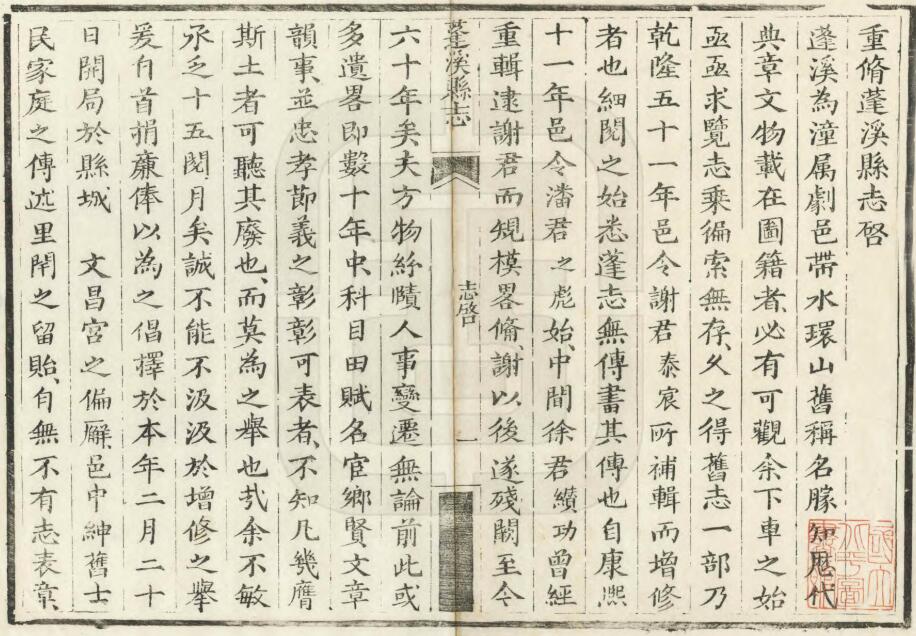 重脩蓬溪縣志啓
蓬溪為潼属劇邑帶水環山舊稱名勝知歷代
典章文物載在圖籍者必有可觀余下車之始
亟亟求覽志乗徧索無存久之得舊志一部乃
乾隆五十一年邑令謝君泰宸所補輯而增修
者也細閱之始悉蓬志無傳書其傳也自康熙
十一年邑令潘君之彪始中間徐君纘功曾經
重輯逮謝君而規模畧脩謝以後遂殘闕至今
蓬溪縣志
志啓
一
六十年矣夫方物紛賾人事變遷無論前此或
多遺畧即數十年中科目田賦名宦鄉賢文章
韻事並忠孝節義之彰彰可表者不知凡幾膺
斯土者可聽其廢也而莫為之舉也㢤余不敏
承乏十五閱月矣誠不能不汲汲於增修之舉
爰自首捐廉俸以為之倡擇於本年二月二十
日開局於縣城 文昌宫之偏廨邑中紳舊士
民家庭之傳述里閈之留貽自無不有志表章